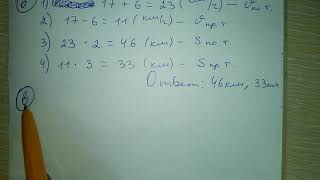 1) 17 + 6 = 23 (км/ч) — v по т.
2) 17 - 6 = 11 (км/ч) — v пр. т.
3) 23 · 2 = 46 (км) — S по т.
4) 11 · 3 = 33 (км) — S пр. т.
Ответ: 46 км, 33 км